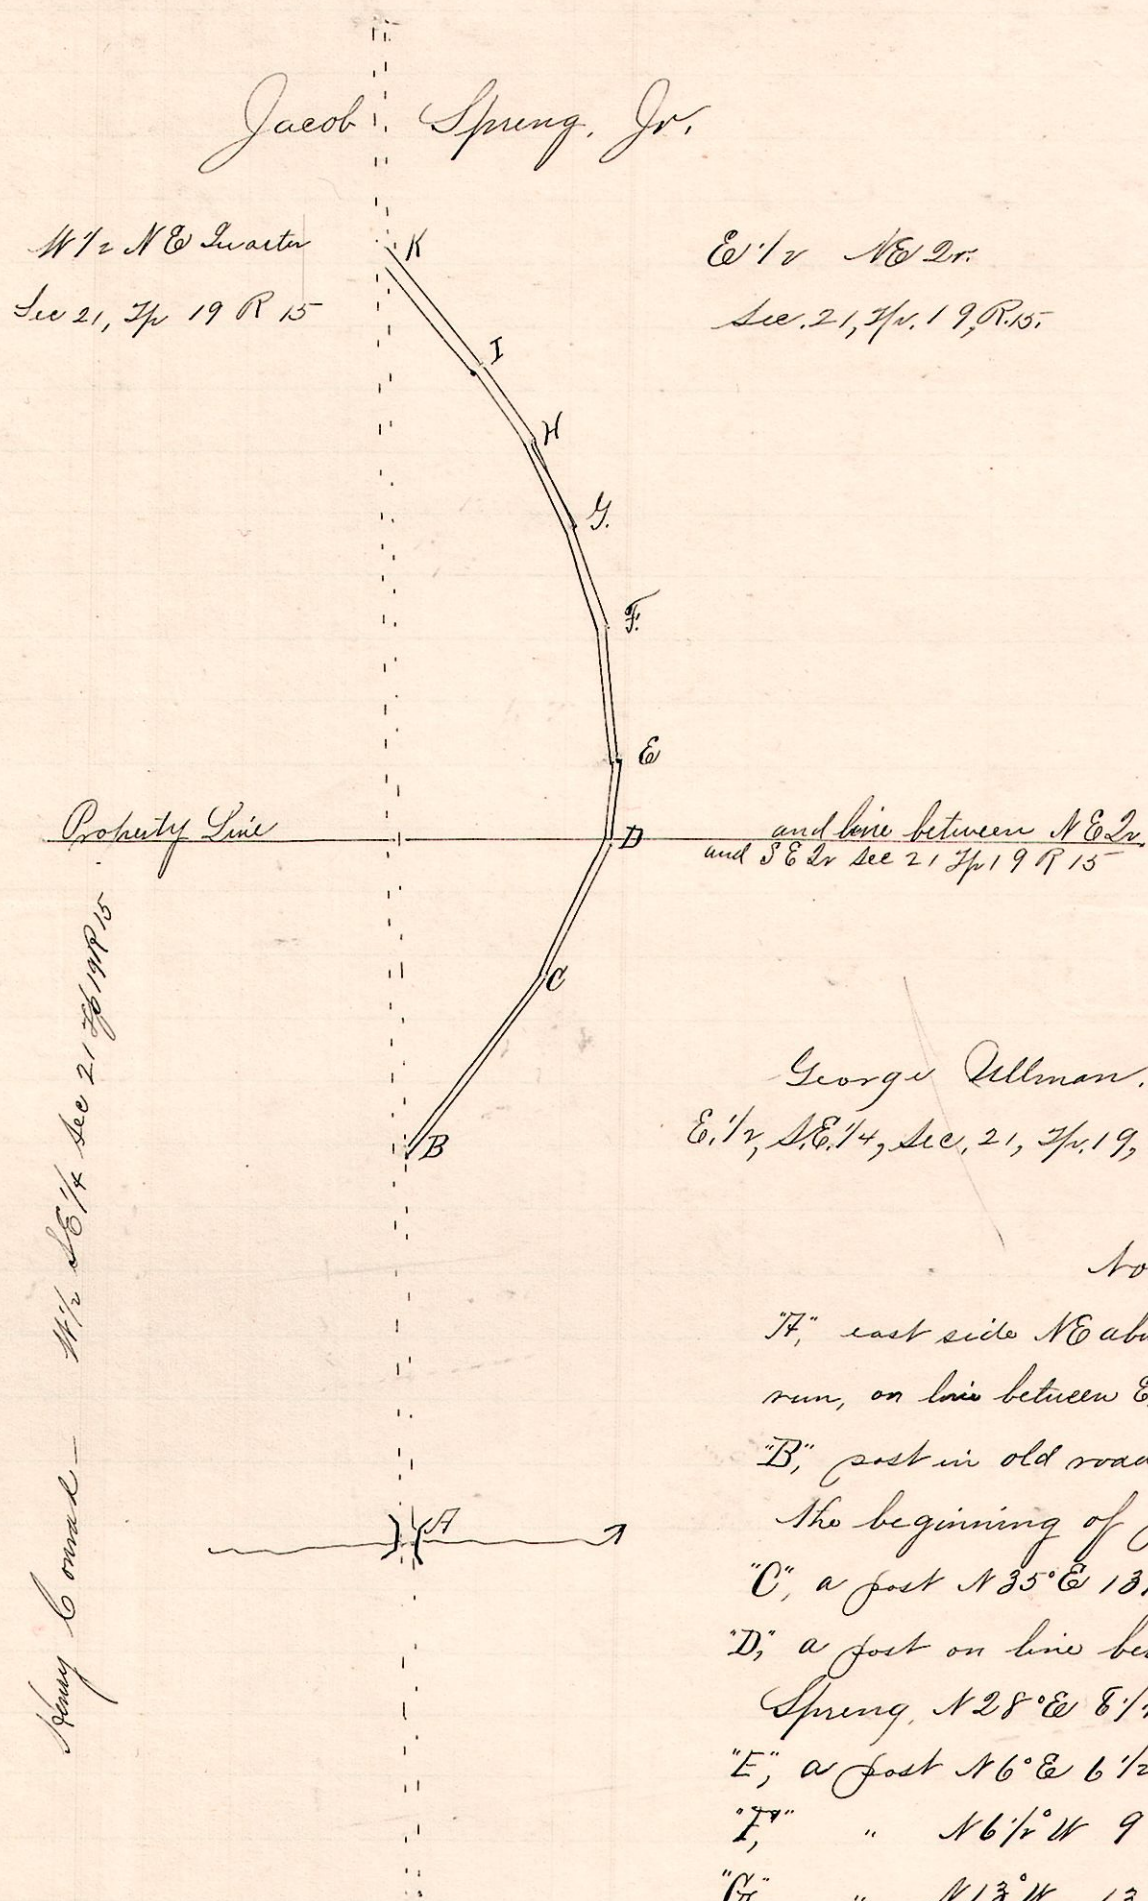 Jacob Spreng, Jr.
W 1/2 NE Quarter
Sec 21, Tp 19 R 15
E 1/2 NE Qr.
Sec. 21, Tp. 19, R. 15.
K
I
H
G.
F.
E
Property Line
D
and line between NE Qr.
and SE Qr Sec 21 Tp 19 R 15
C
B
A
George Ullman.
E. 1/2, S.E. 1/4, Sec. 21, Tp. 19,
Henry Conrad — W 1/2 SE 1/4 Sec 21 Tp 19 R 15
No
"A", east side NE abu
run, on line between E
"B", post in old road
the beginning of
"C", a post N 35° E 13
"D", a post on line be
Spreng, N 28° E 8 1/2
"E", a post N 6° E 6 1/2
"F", " N 6 1/2° W 9
"G" " N 13° W 13